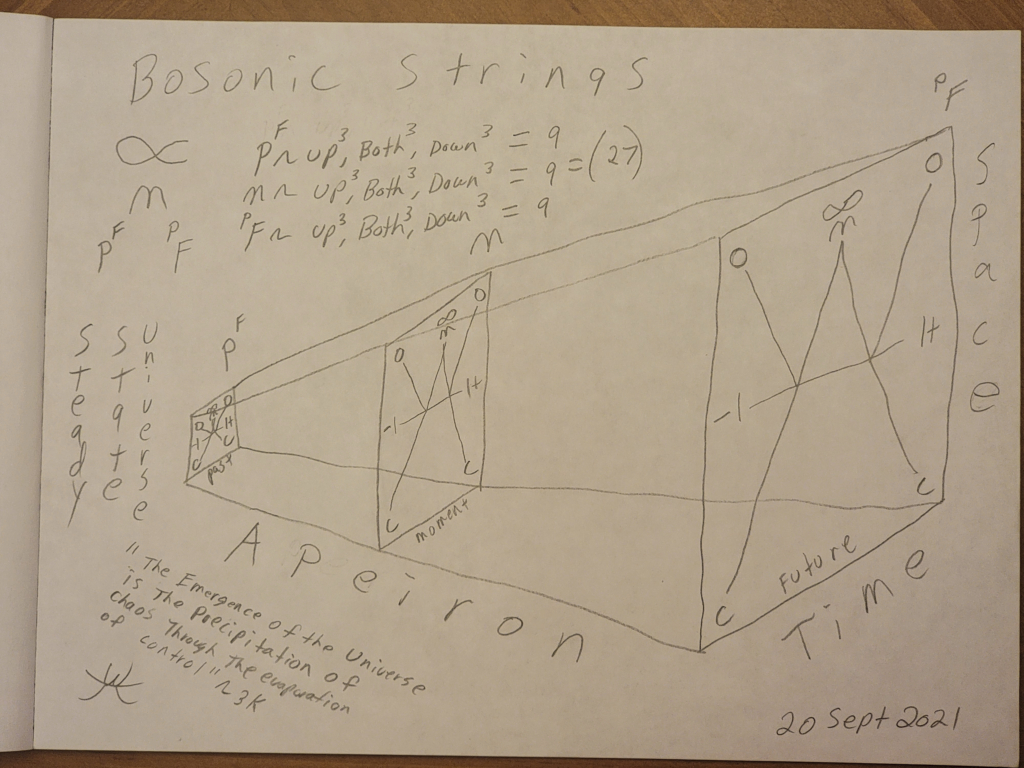 Bosonic Strings
∝
n
Pᶠ ᴾF
Pᶠ ~ up³, Both³, Down³ = 9
n ~ up³, Both³, Down³ = 9 = (27)
ᴾF ~ up³, Both³, Down³ = 9
Steady
State
Universe
Pᶠ
O
O
-1
H
C
C
past
n
O
∞
n
O
-1
H
C
C
moment
ᴾF
O
∞
n
O
-1
H
C
C
Future
Space
Time
Apeiron
"The Emergence of the Universe
is The Precipitation of
chaos Through The evaporation
of control" ~ 3K
20 Sept 2021